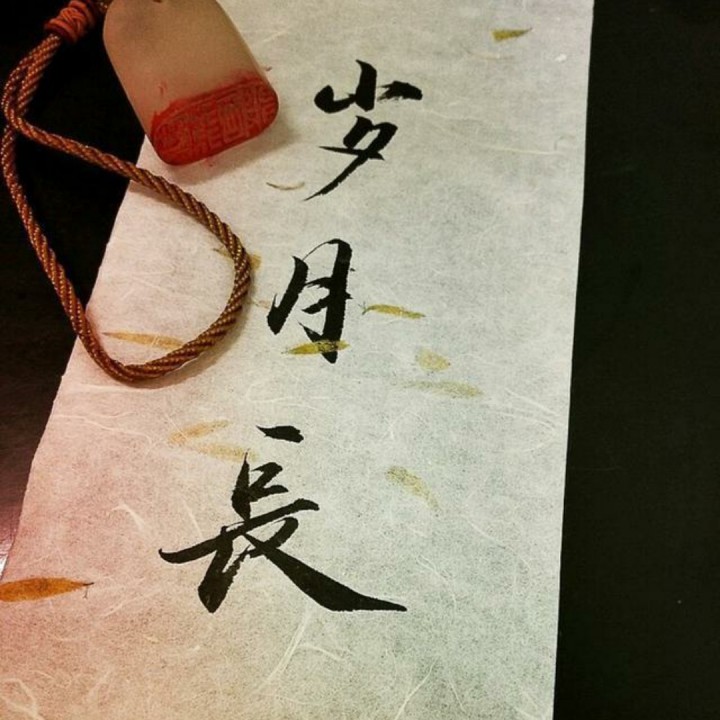 岁月長